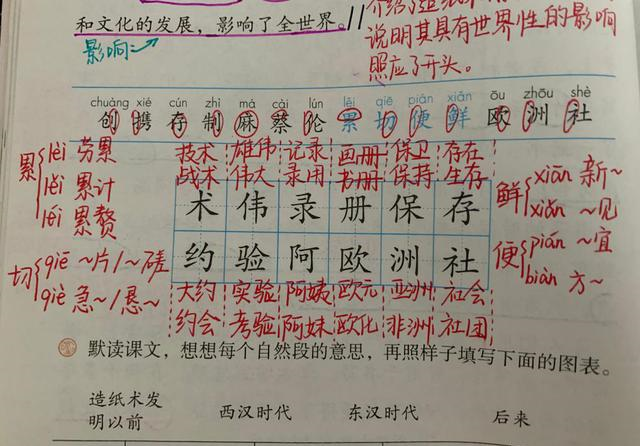 和文化的发展，影响了全世界。
影响
说明其具有世界性的影响
照应了开头。
chuàng xié cún zhì má cài lún lěi qiē pián xiān ōu zhōu shè
创 携 存 制 麻 蔡 伦 累 切 便 鲜 欧 洲 社
累 lèi 劳累
lěi 累计
léi 累赘
切 qiē ~片/~磋
qiè 急~/恳~
技术 雄伟 记录 画册 保卫 存在
战术 伟大 录用 书册 保持 生存
术 伟 录 册 保 存
约 验 阿 欧 洲 社
大约 实验 阿姨 欧元 亚洲 社会
约会 考验 阿妹 欧化 非洲 社团
鲜 xiān 新~
xiǎn ~见
便 pián ~宜
biàn 方~
默读课文，想想每个自然段的意思，再照样子填写下面的图表。
造纸术发
明以前
西汉时代
东汉时代
后来